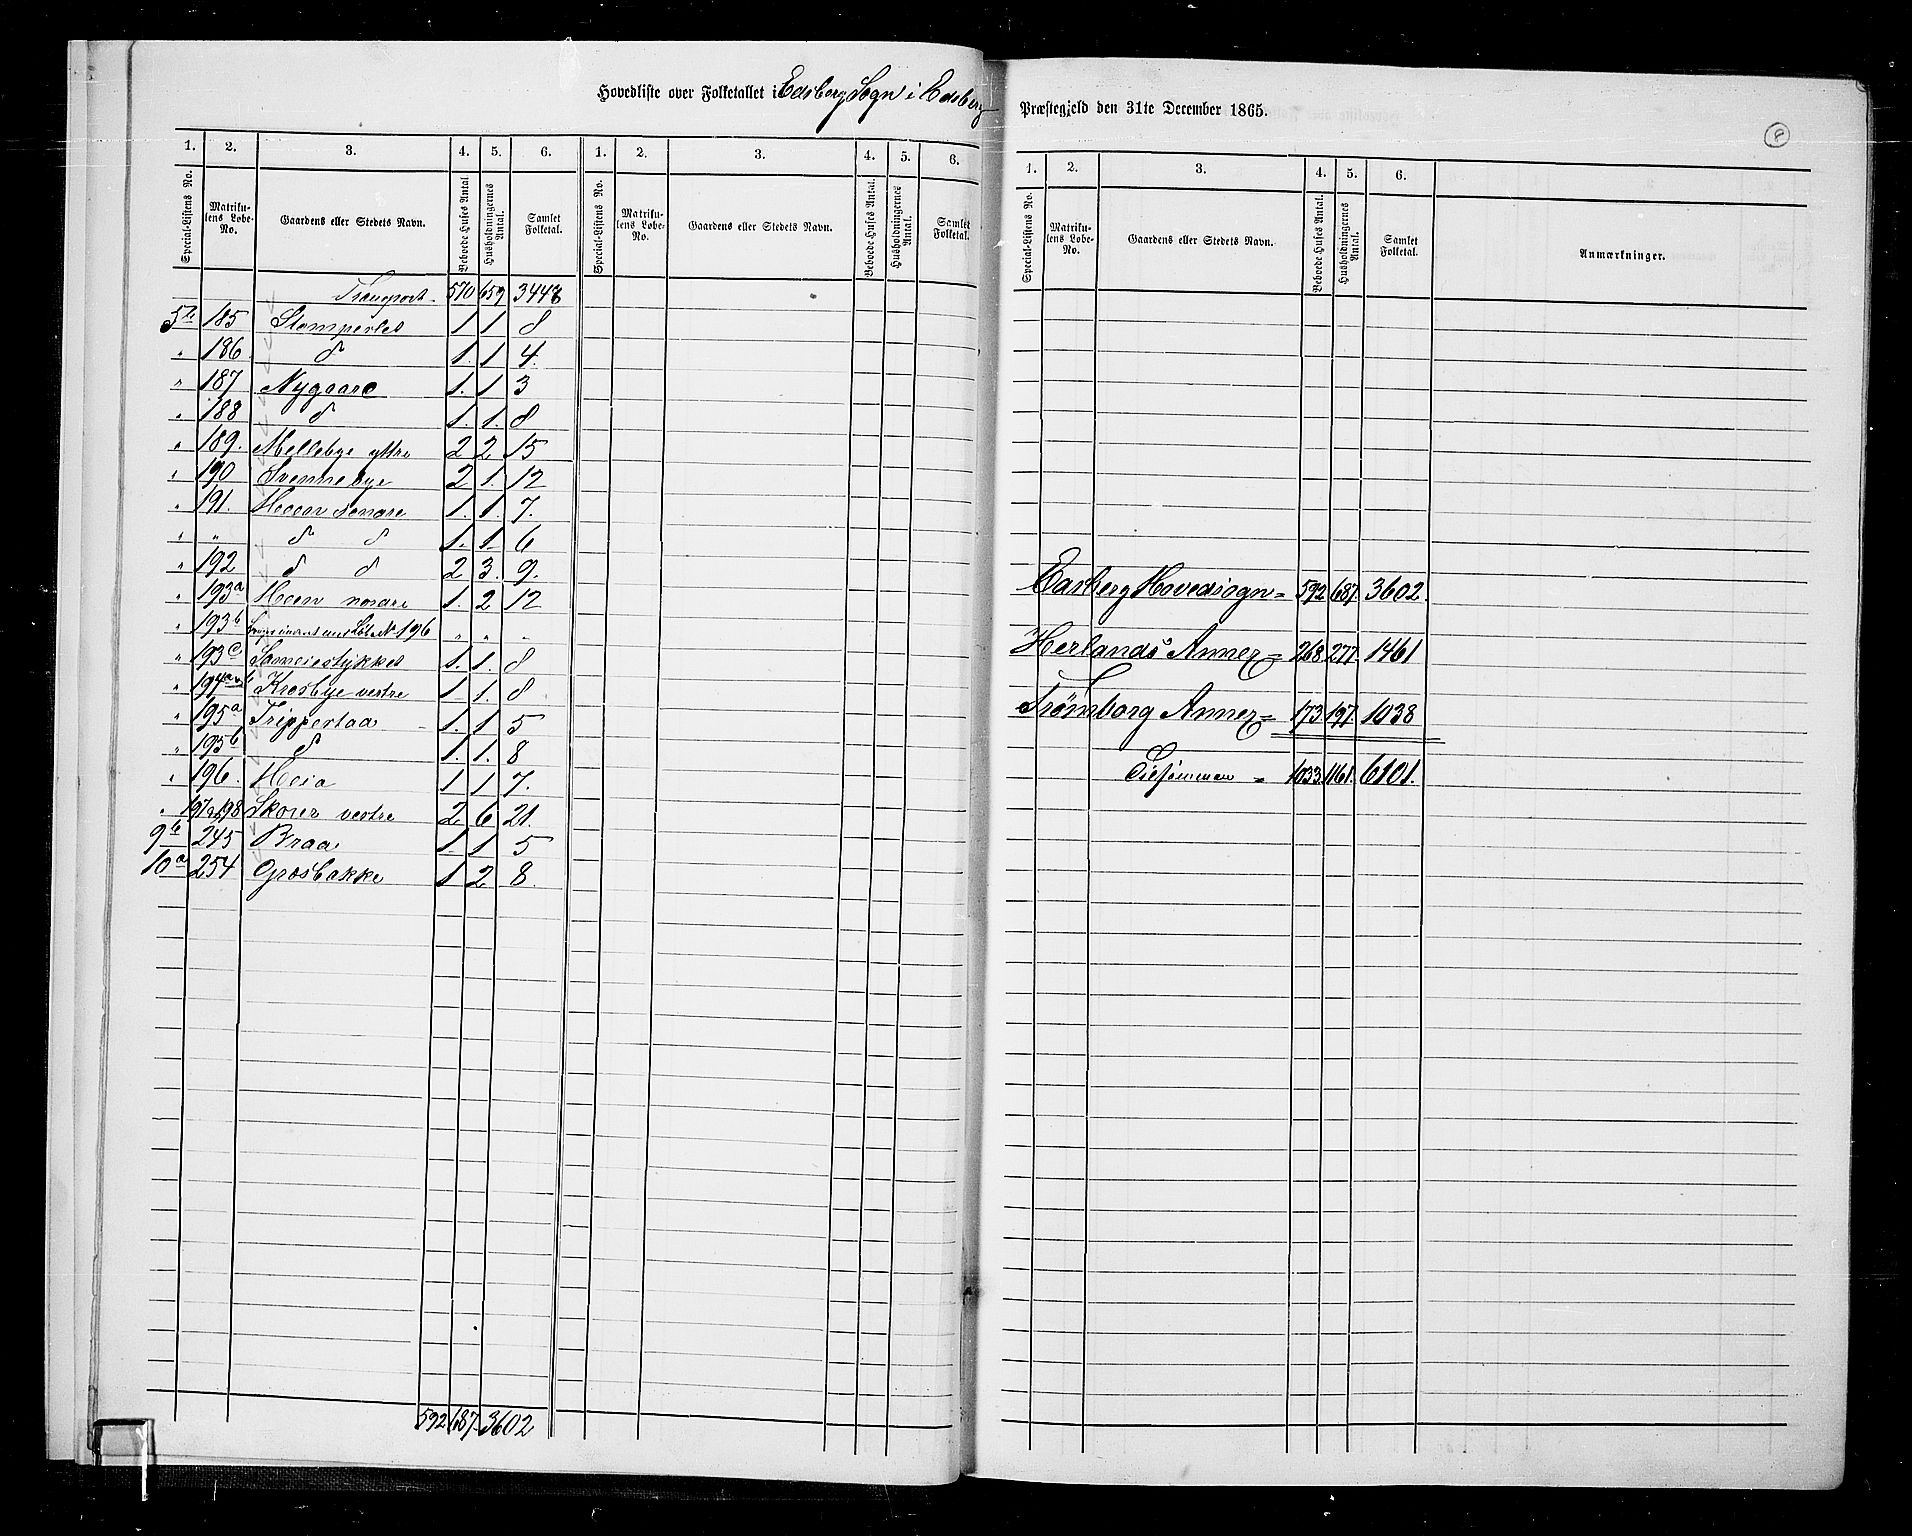 Hovedliste over Folketallet i Edsberg Sogn i Edsberg Præstegjeld den 31te December 1865.
8
1. 2. 3. 4. 5. 6. 1. 2. 3. 4. 5. 6.
Special-Listens No. Matrikulens Løbe-No. Gaardens eller Stedets Navn. Beboede Huses Antal. Husholdningernes Antal. Samlet Folketal. Special-Listens No. Matrikulens Løbe-No. Gaardens eller Stedets Navn. Beboede Huses Antal. Husholdningernes Antal. Samlet Folketal.
Transport. 570 659 3448
5te 185 Slomperled 1 1 8
" 186 d 1. 1 4.
" 187 Nygaard 1. 1 3
" 188 d 1. 1. 8
" 189. Mellebye yttre 2 2 15
" 190 Svennebye 2 1. 12
" 191. Hoeen søndre 1. 1. 7.
" " d d 1. 1. 6
" 192 d d 2 3. 9.
" 193a Hoeen nordre 1. 2 12
" 193b 196 " " "
" 193c Sameiestykket 1. 1. 8
" 194 Krosbye vestre 1 1. 8
" 195a Trippestaa 1. 1 5
" 195b d 1. 1. 8
" 196. Heia 1 1 7.
" 197 198 Skorer vestre 2 6 21.
9te 245 Braa 1 1 5
10a 254 Græsbakke 1 2 8.
592 687. 3602
1. 2. 3. 4. 5. 6.
Special-Listens No. Matrikulens Løbe-No. Gaardens eller Stedets Navn. Beboede Huses Antal. Husholdningernes Antal. Samlet Folketal. Anmærkninger.
Edsberg Hovedsogn = 592 687. 3602.
Herlands Annex = 268 277. 1461
Trømborg Annex = 173 197. 1038
Tilsammen = 1033. 1161. 6101.